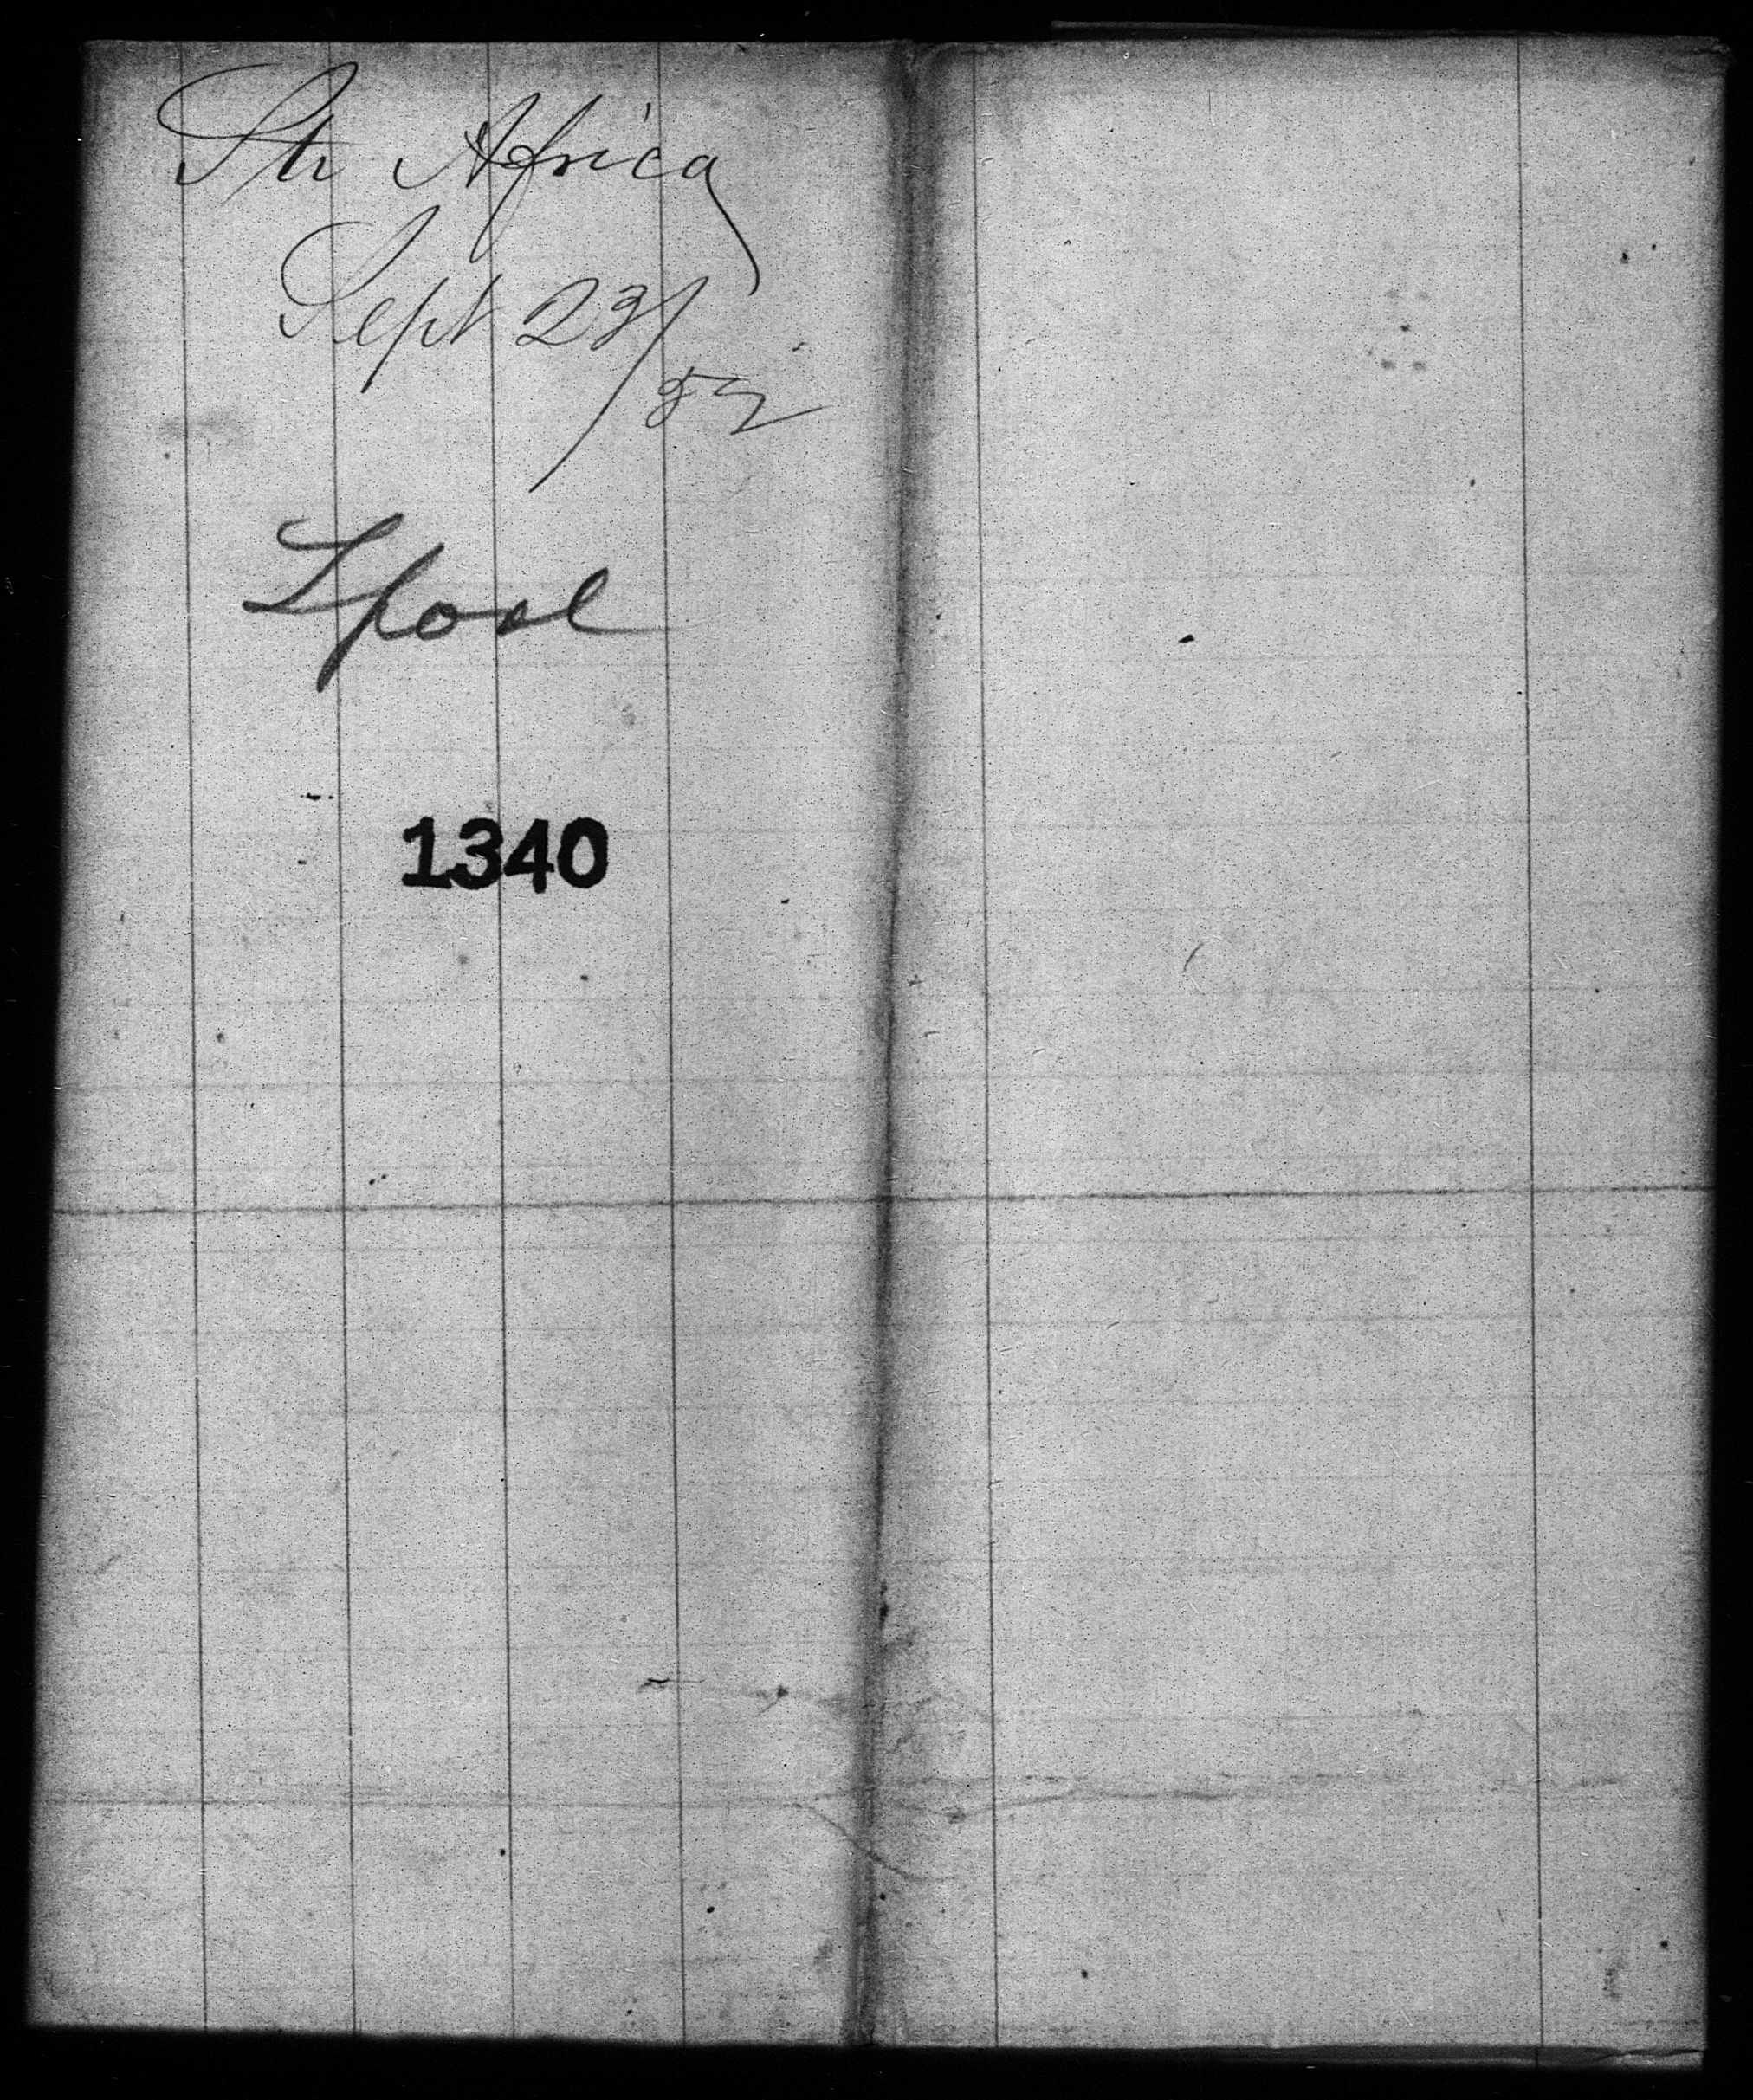 Str Africa
Sept 23/
52
Lpool
1340